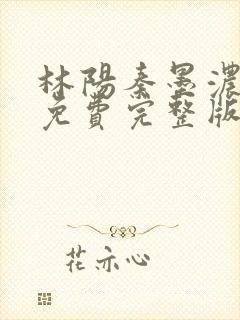 林陽秦墨濃
免費完整版
花亦心